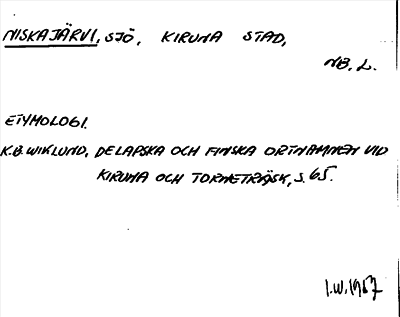 NISKAJÄRVI, SJÖ, KIRUNA STAD,
NB. L.
ETYMOLOGI.
K.B. WIKLUND, DE LAPSKA OCH FINSKA ORTNAMNEN VID
KIRUNA OCH TORNETRÄSK, S. 65.
I.W. 1967